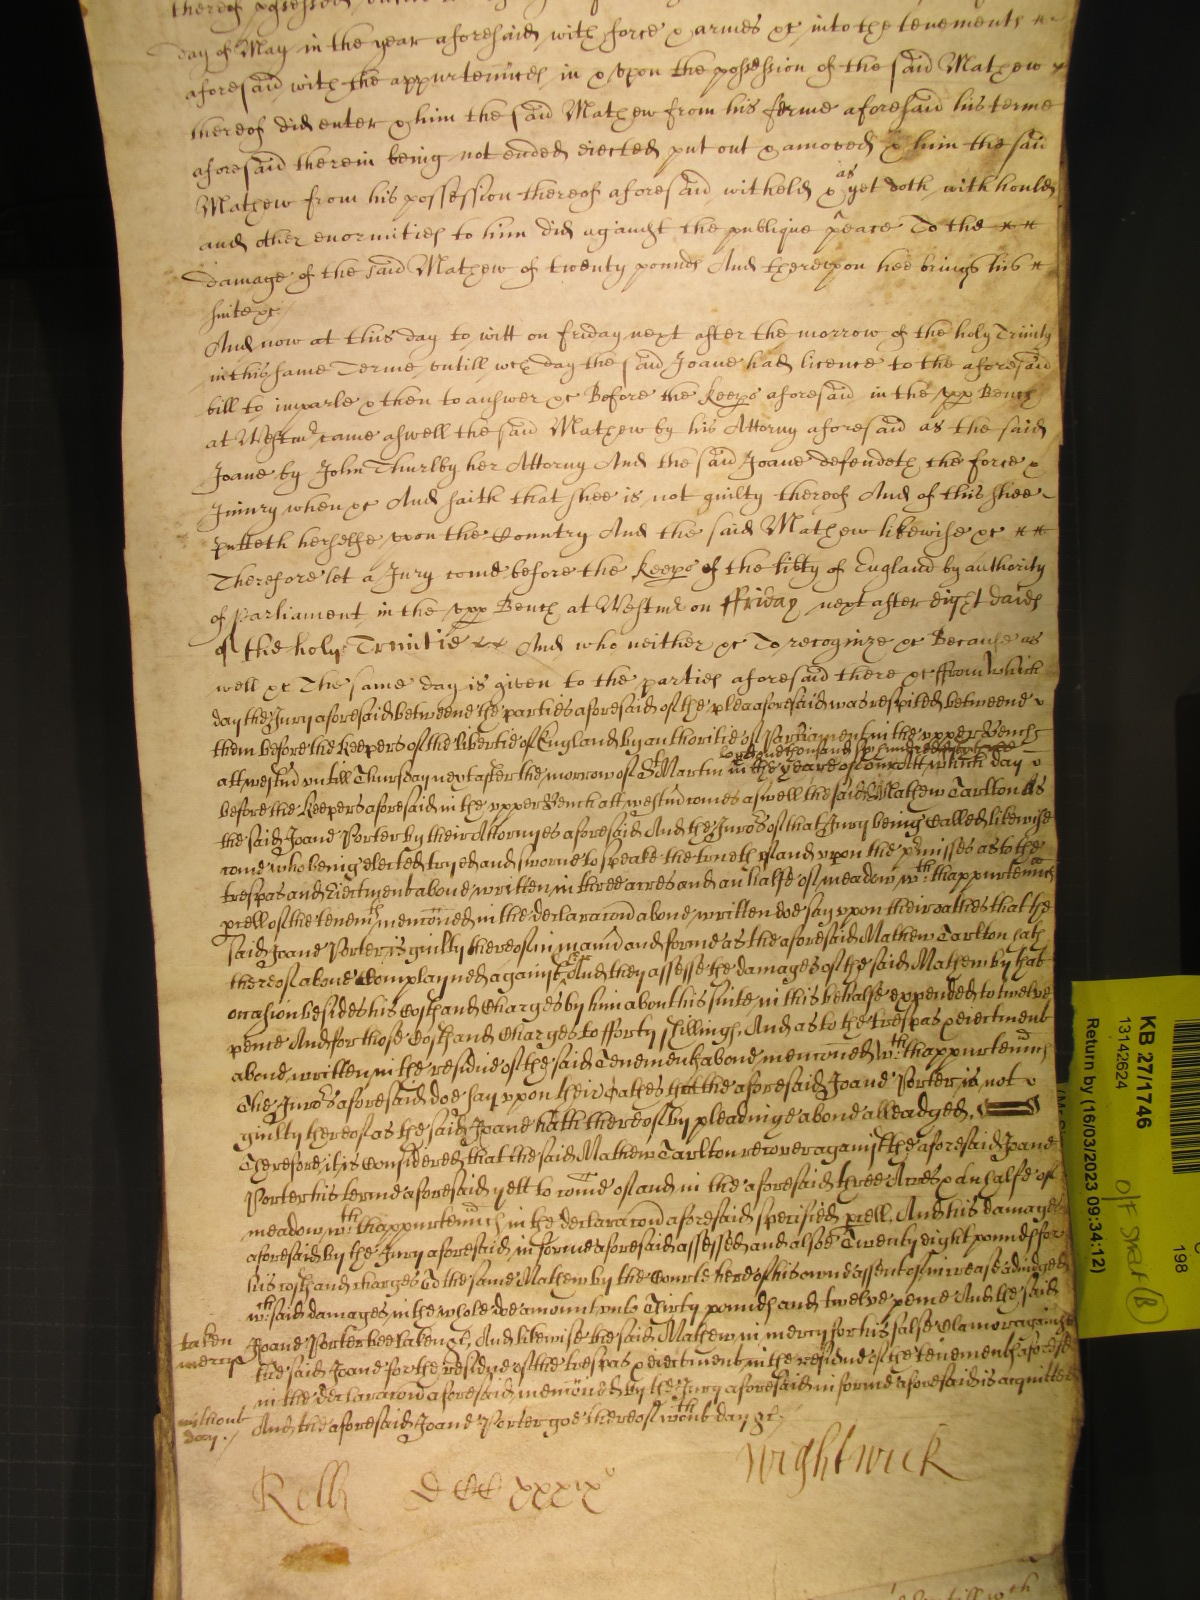 thereof possessed
day of May in the year aforesaid with force & armes &c into the tenements
aforesaid with the appurtennces in & vpon the possession of the said Mathew
thereof did enter & him the said Mathew from his ferme aforesaid his terme
aforesaid therein being not ended eiected put out & amoved & him the said
Mathew from his possession thereof aforesaid witheld & as yet doth withhould
and other enormities to him did against the publique peace To the
damage of the said Mathew of twenty pounds And therevpon hee brings his
suite &c
And now at this day to witt on friday next after the morrow of the holy Trinity
in this same Terme vntill wch day the said Joane had licence to the aforesaid
bill to imparle & then to answer &c Before the keeps aforesaid in the vpp Bench
at Westmr came aswell the said Mathew by his Attorny aforesaid as the said
Joane by John Thurlby her Attorny And the said Joane defendeth the force &
Iniury when &c And saith that shee is not guilty thereof And of this shee
putteth herselfe vpon the Country And the said Mathew likewise &c
Therefore let a Jury come before the keeps of the libty of England by authority
of Parliament in the vpp Bench at Westmr on ffriday next after eight daies
of the holy Trinitie And who neither &c To recognize &c Because as
well &c The same day is given to the parties aforesaid there &c ffrom which
day the Jury aforesaid betweene the parties aforesaid of the plea aforesaid was respited betweene
them before the Keepers of the libertie of England by authoritie of Parliament in the vpper Bench
att westmr vntill Thursday next after the morrow of St Martin in the yeare of our lord one thousand six hundred which day
before the Keepers aforesaid in the vpper Bench att westmr comes aswell the said Mathew Carlton as
the said Joane Porter by their Attornyes aforesaid And the Jurors of that Jury being called likewise
come who being elected tryed and sworne to speake the trueth of and vpon the prmisses as to the
trespas and Eiectment aboue written in three acres and an halfe of meadow wth thappurtennces
prcell of the tenemts menconed in the declaracon aboue written doe say vpon their oathes that the
said Joane Porter is guilty thereof in mannr and forme as the aforesaid Mathew Carlton hath
thereof aboue Complayned against her And they assesse the damages of the said Mathew by that
occasion besides his Costs and Charges by him about his suite in this behalfe expended to twelve
pence And for those Costs and Charges to fforty shillings, And as to the trespas & eiectment
aboue written in the residue of the said Tenements aboue menconed wth thappurtennces
The Jurors aforesaid doe say vpon their oathes that the aforesaid Joane Porter is not
guilty thereof as the said Joane hath thereof by pleadinge aboue alleadged,
Therefore it is Considered that the said Mathew Carlton recover against the aforesaid Joane
Porter his terme aforesaid yett to come of and in the aforesaid three Acres & an halfe of
meadow wth thappurtennces in the declaracon aforesaid specified prcell, And his damages
aforesaid by the Jury aforesaid in forme aforesaid assessed and alsoe Twenty eight pounds for
his costs and charges To the same Mathew by the Courte here of his owne assent of increase adiudged
wch said damages in the whole doe amount vnto Thirty pounds and twelve pence And the said
taken Joane Porter bee taken &c, And likewise the said Mathew in mercy for his false Clamor against
mercy the said Joane for the residue of the trespas & eiectment in the residue of the tenements aforesaid
in the declaracon aforesaid menconed by the Jury aforesaid in forme aforesaid is acquitted
without day. And the aforesaid Joane Porter goe thereof wthout day &c,
Wightwick
Roll DCCxxxixo
KB 27/1746
13142624
Return by (16/03/2023 09:34:12)
198